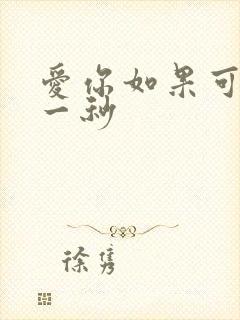 愛你如果可
一秒
徐隽